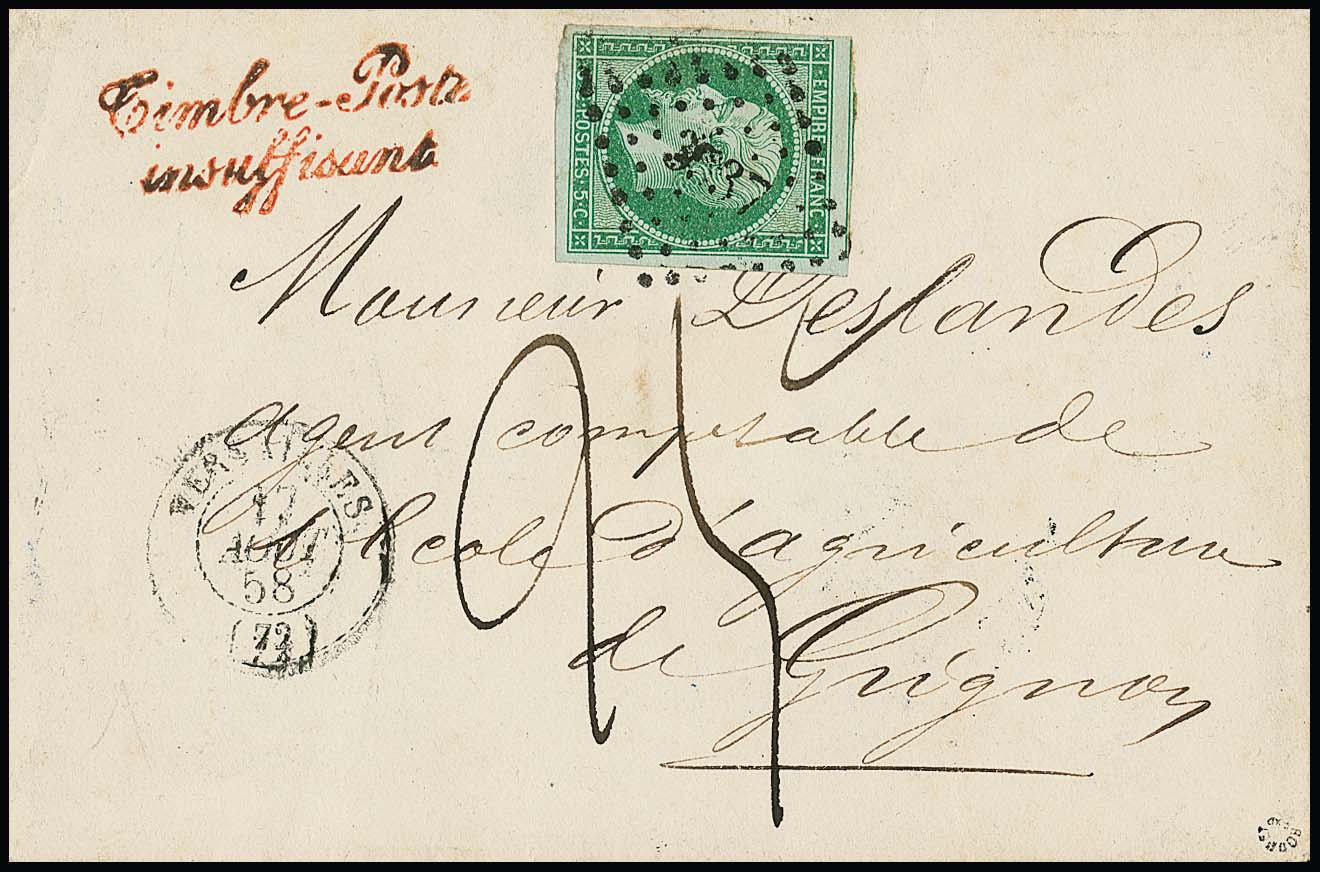 Timbre-Poste
insuffisant
EMPIRE FRANC
POSTES 5 C
Monsieur Deslandes
agent comptable de
l'école d'agriculture
de Grignon
VERSAILLES
17
AOUT
58
(72)
25